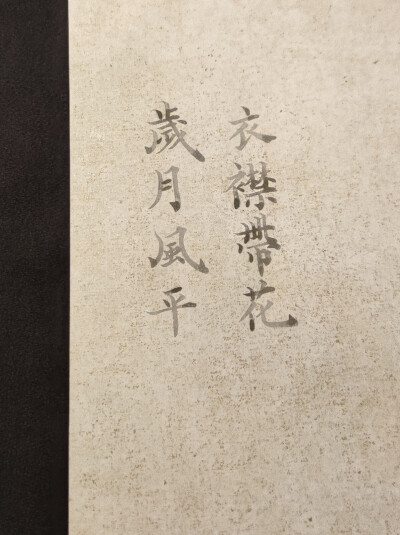 衣襟帶花
歲月風平